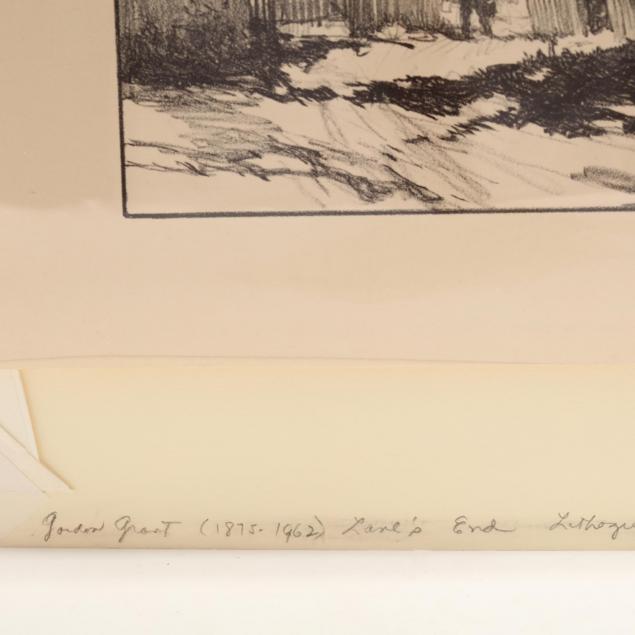 Gordon Grant (1875-1962) Lane's End Lithogr